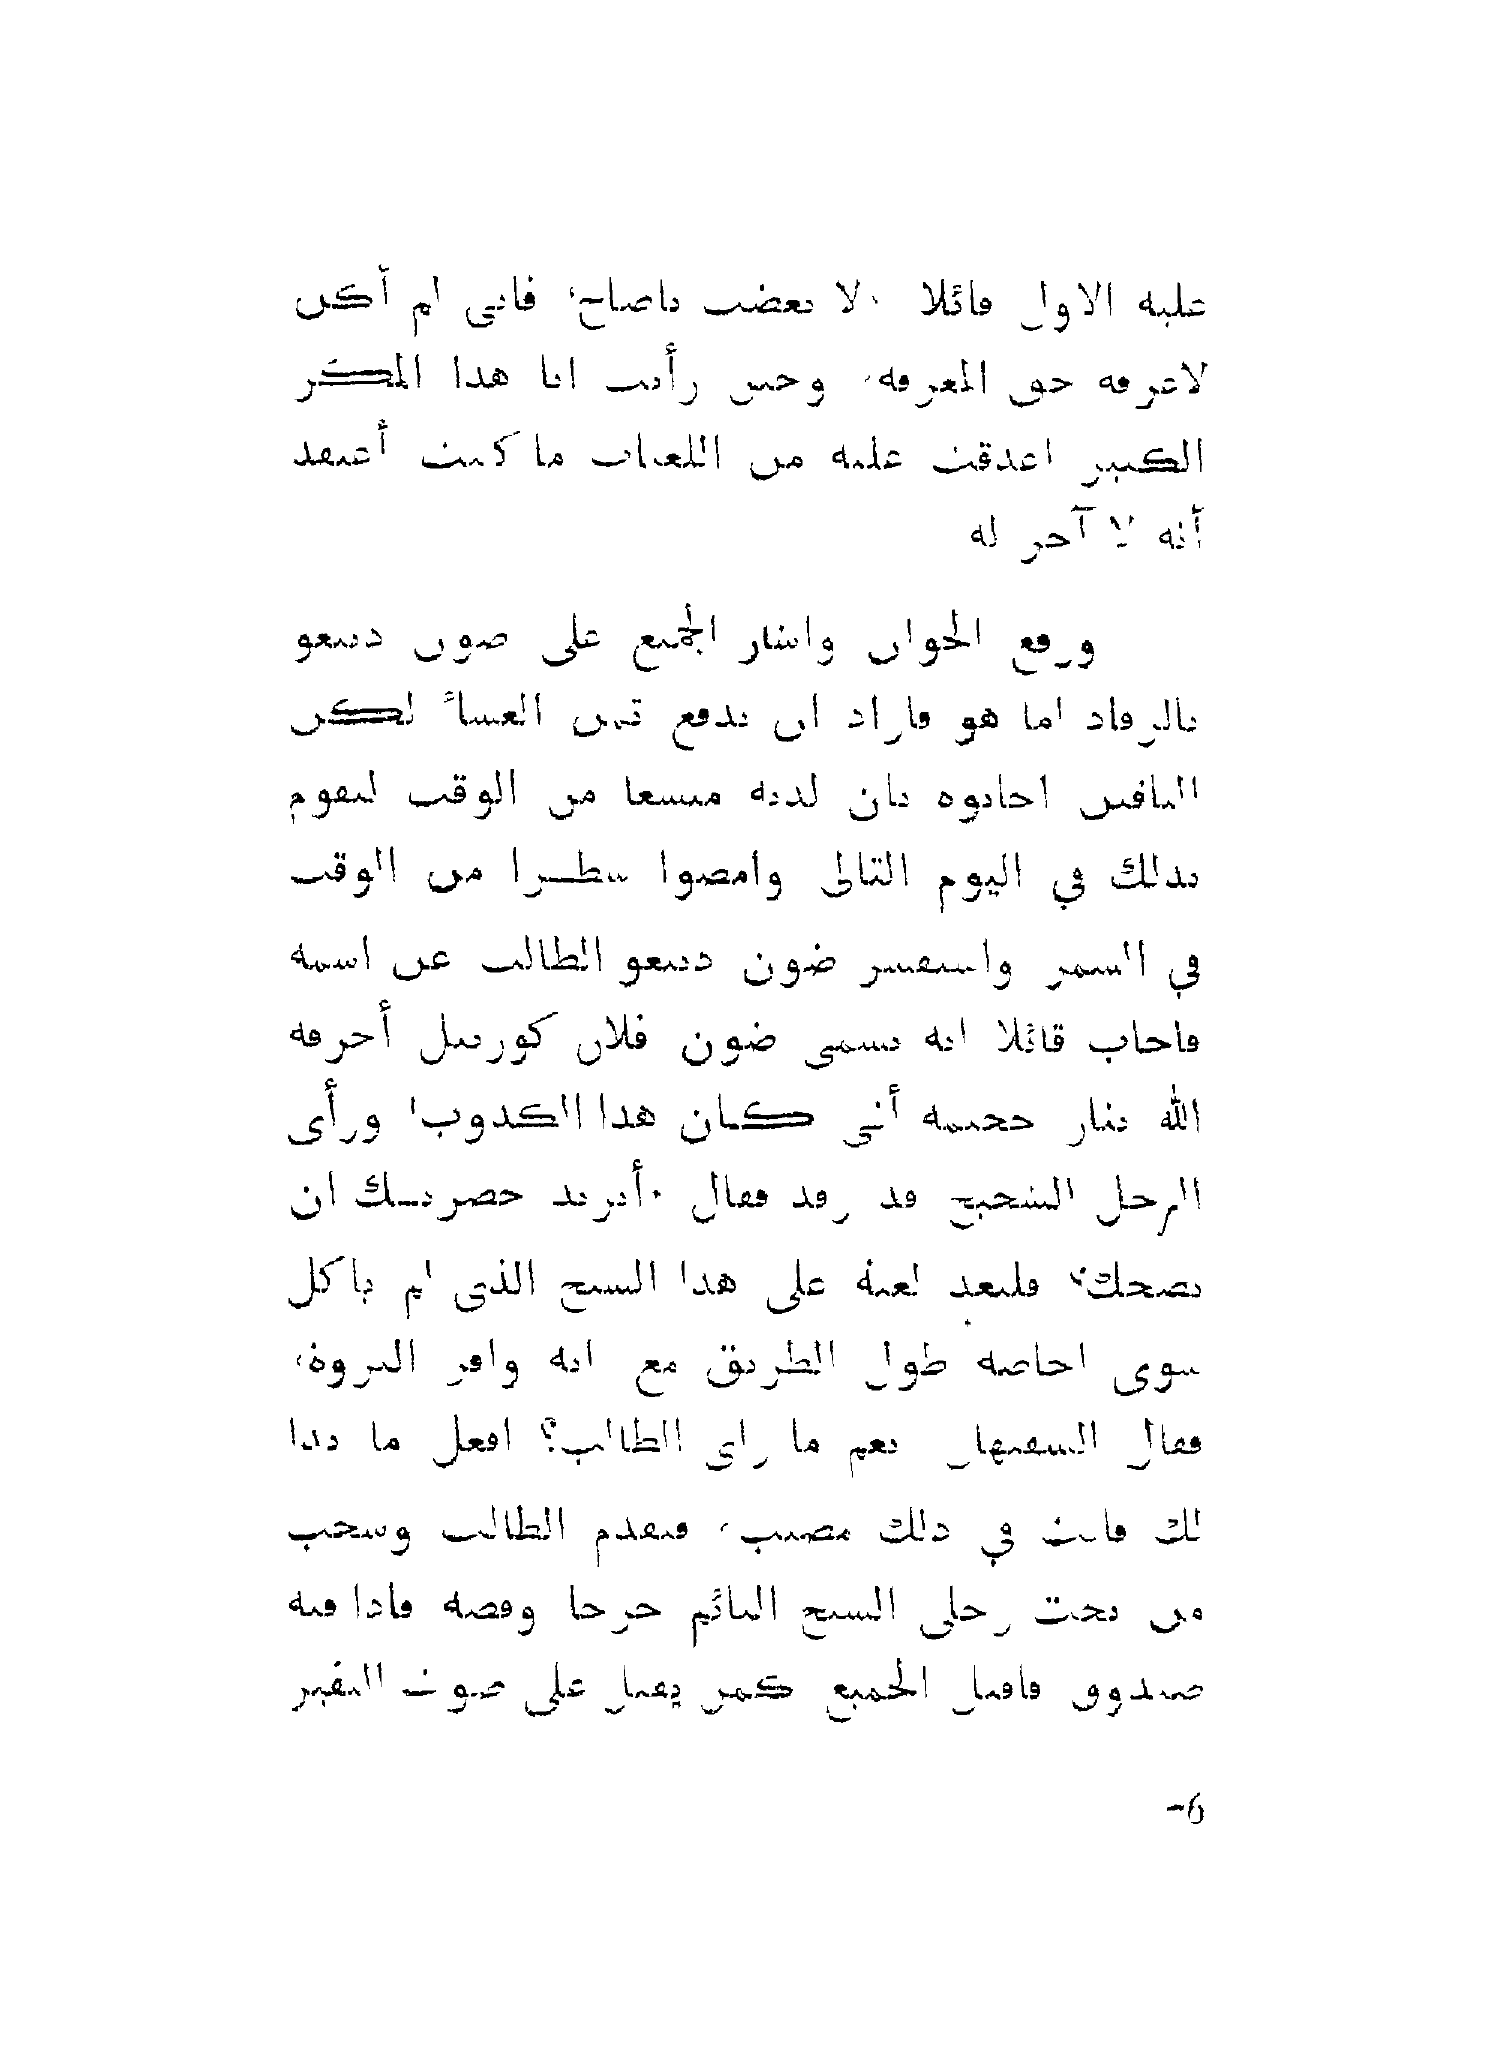 عليه الاول قائلا ٠ لا تغضب ياصاح، فاني لم أكن
لاعرفه حق المعرفه، وحين رأيت انا هذا المكر
الكبير اغدقت عليه من اللعنات ما كنت أعتقد
أنه لا آخر له
ورفع الخوان واشار الجميع على ضون دييغو
بالرقاد اما هو فاراد ان يدفع ثمن العشاء لكن
الباقين اجابوه بان لديه متسعا من الوقت ليقوم
بذلك في اليوم التالى وامضوا شطرا من الوقت
في السمر واستفسر ضون دييغو الطالب عن اسمه
فاجاب قائلا انه يسمى ضون فلان كورنيل أحرقه
الله بنار جحيمه أنى كان هذا الكذوب! ورأى
الرجل الشحيح قد رقد فقال ٠ أتريد حضرتك ان
تضحك؟ فلنعد لعبة على هذا الشيخ الذى لم يأكل
سوى اجاصه طول الطريق مع انه وافر الثروة،
فقال السفيهان نعم ما راى الطالب؟ افعل ما بدا
لك فانت في ذلك مصيب، فتقدم الطالب وسحب
من تحت رجلى الشيخ النائم خرجا وفضه فاذا فيه
صندوق فاقبل الجميع كمن يقبل على صوت النفير
6-